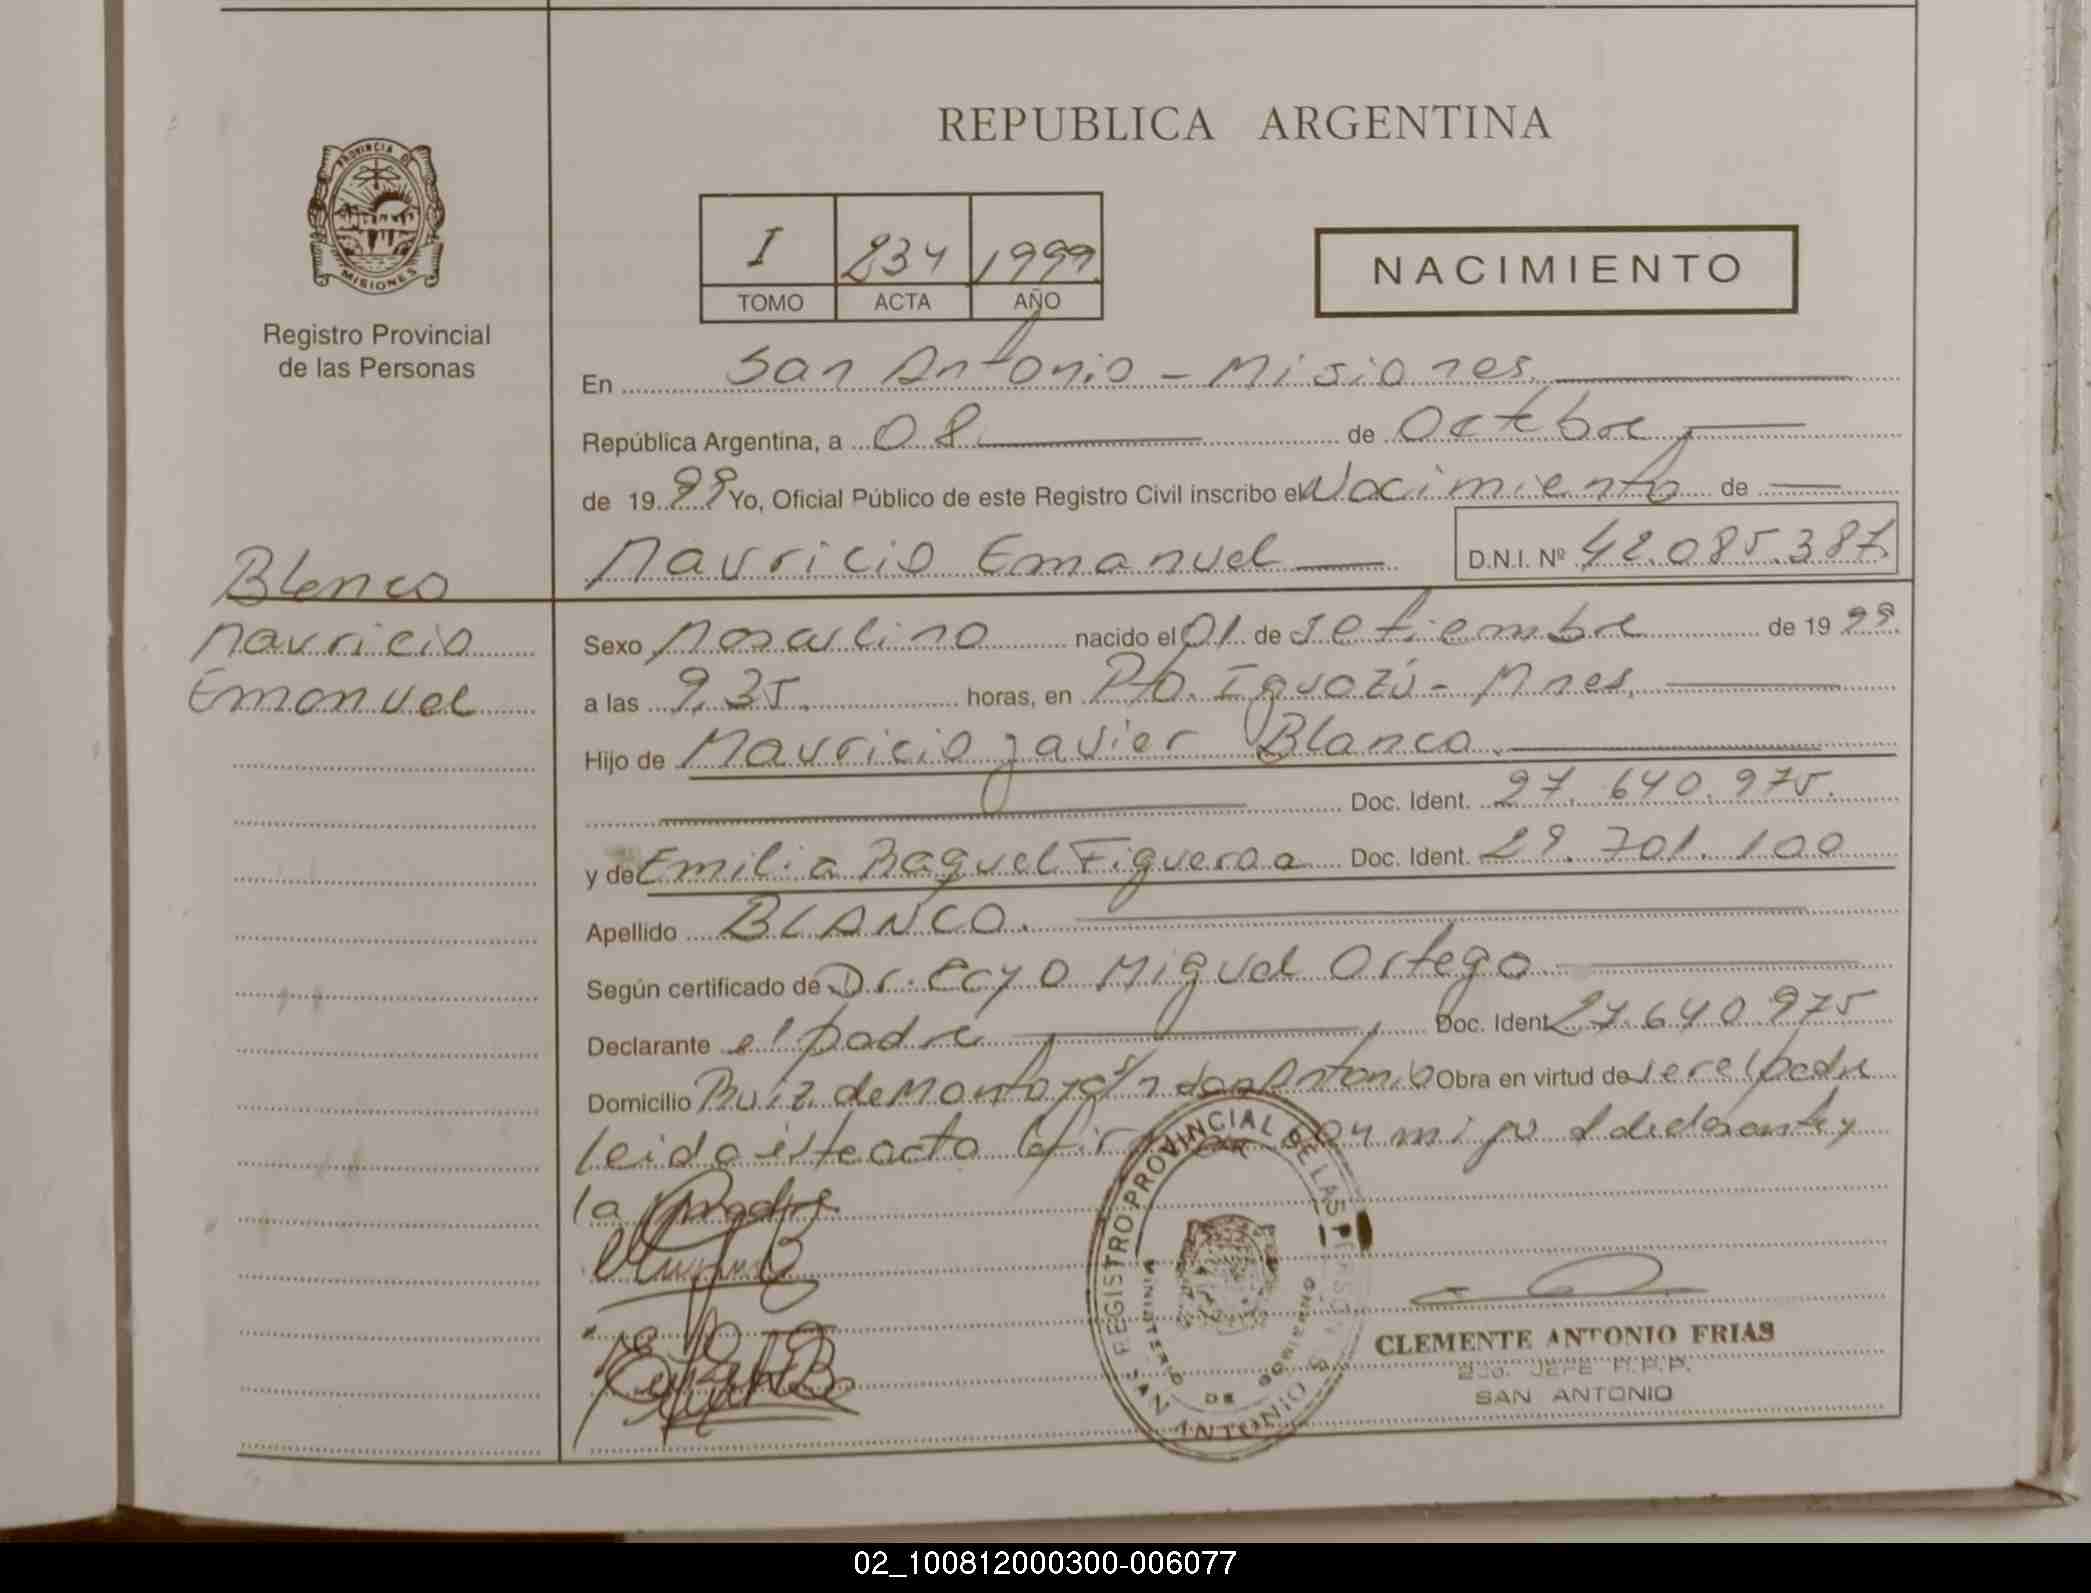 REPUBLICA ARGENTINA
PROVINCIA DE
MISIONES
Registro Provincial
de las Personas
I 234 1999
TOMO ACTA AÑO
NACIMIENTO
En San Antonio - Misiones.
República Argentina, a 08 de Octbre
de 1999 Yo, Oficial Público de este Registro Civil inscribo el Nacimiento de
Mauricio Emanuel D.N.I. Nº 42.085.387
Blanco
Mauricio
Emanuel
Sexo Masculino nacido el 01 de Setiembre de 1999
a las 9,35 horas, en Pto. Iguazú - Mnes.
Hijo de Mauricio Javier Blanco
Doc. Ident. 27.640.975.
y de Emilia Raquel Figueroa Doc. Ident. 29.701.100
Apellido BLANCO.
Según certificado de Dr. Miguel Ortego
Declarante el padre Doc. Ident 27.640.975
Domicilio Ruiz de Montoya s/n San Antonio Obra en virtud de ser el padre
leida este acta la firman por mi el declarante y
la madre
REGISTRO PROVINCIAL DE LAS PERSONAS
MINISTERIO DE GOBIERNO
SAN ANTONIO
CLEMENTE ANTONIO FRIAS
2do. JEFE R.P.P.
SAN ANTONIO
02_100812000300-006077